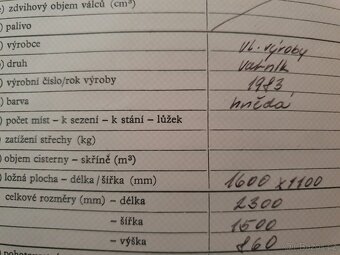 ) zdvihový objem válců (cm³)
) palivo
) výrobce vl. výroby
) druh
) výrobní číslo/rok výroby 1983
) barva hnědá
) počet míst – k sezení – k stání – lůžek
) zatížení střechy (kg)
) objem cisterny – skříně (m³)
) ložná plocha – délka / šířka (mm) 1600 x 1100
celkové rozměry (mm) – délka 2300
– šířka 1500
– výška 860